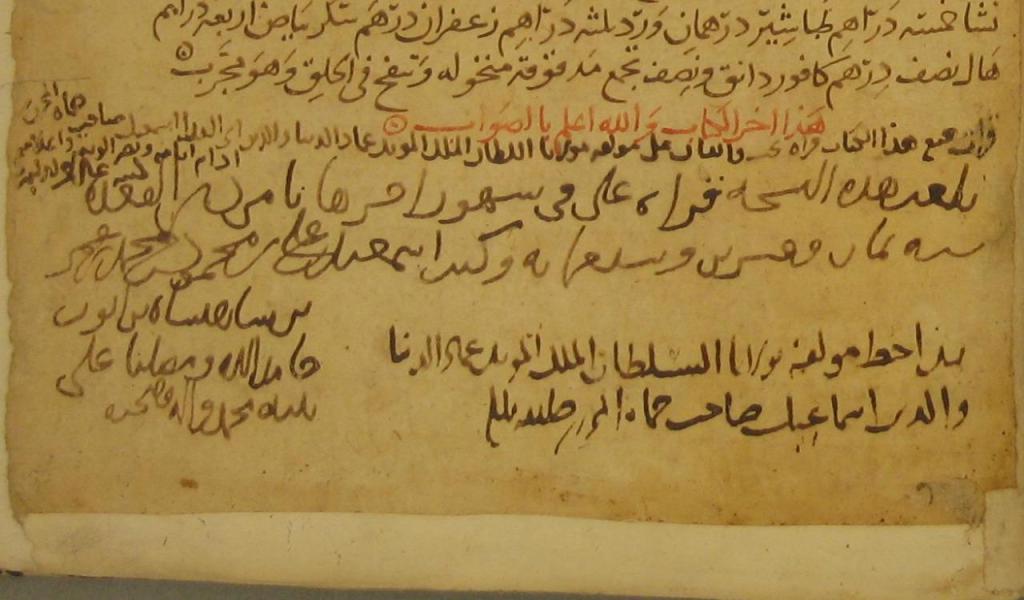 نشا خمسة دراهم طباشير درهمان ورد ثلثه دراهم زعفران درهم سكر بياض اربعه دراهم
هال نصف درهم كافور دانق ونصف يجمع مدقوقه منخوله وتنفخ في الحلق وهو مجرب
هذا اخر الكتاب والله اعلم بالصواب
قرات جميع هذا الكتاب قراة على مولفه مولانا السلطان الملك المويد عماد الدنيا والدين ابى الفدا اسمعيل صاحب حماه
بلغت هذه النسخه قراه على فى شهور اخرها ثامن القعده
سنه ثمان وعشرين وسبعمايه وكتب اسمعيل بن على بن محمود بن محمد بن عمر
بن شاهنشاه بن ايوب
حامدا لله ومصليا على
نبيه محمد واله وصحبه
هذا خط مولفه مولانا السلطان الملك المويد عماد الدنيا
والدين اسماعيل صاحب حماه